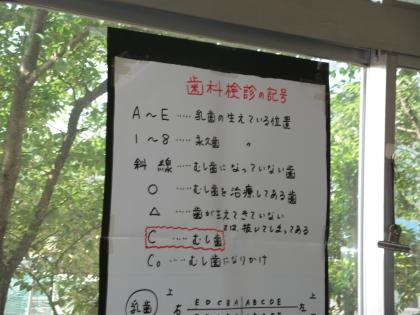 歯科検診の記号
A～E ……乳歯の生えている位置
1～8 ……永久歯 〃
斜線……むし歯になっていない歯
○ ……むし歯を治療してある歯
△ ……歯が生えてきていない
又は、抜いてしまってある
C ……むし歯
C₀ ……むし歯になりかけ
乳歯 上 右 E D C B A A B C D E 上